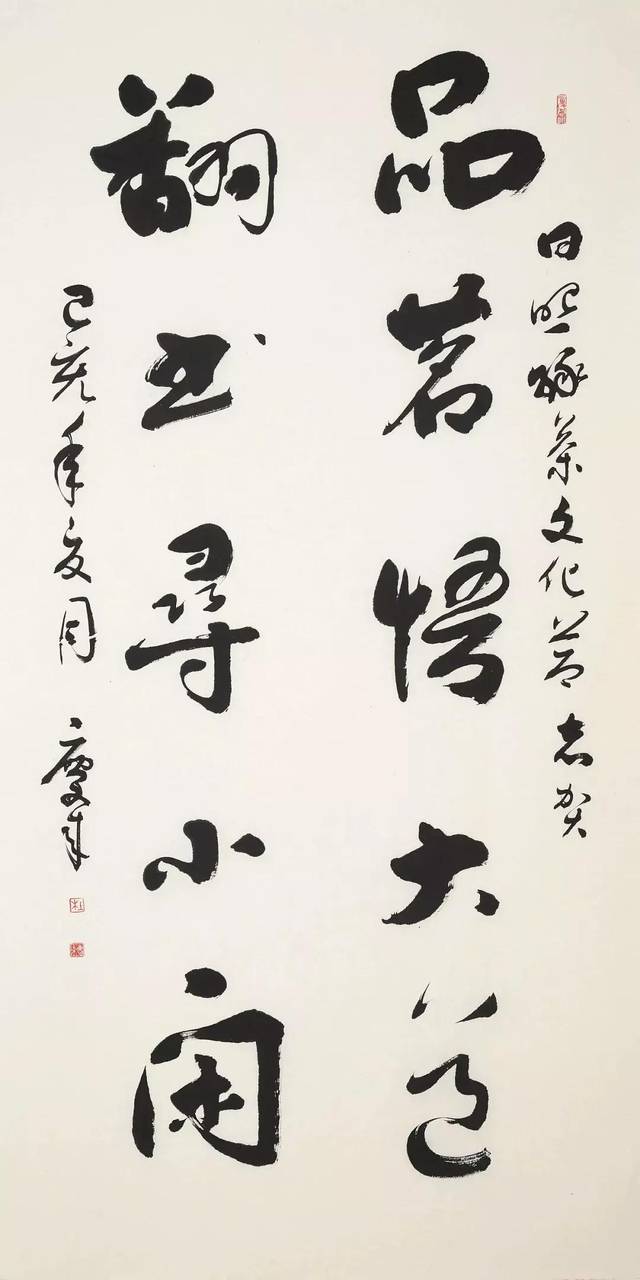 日照绿茶文化节志贺
品茗悟大道
翻书尋小闲
己亥年夏月 慶